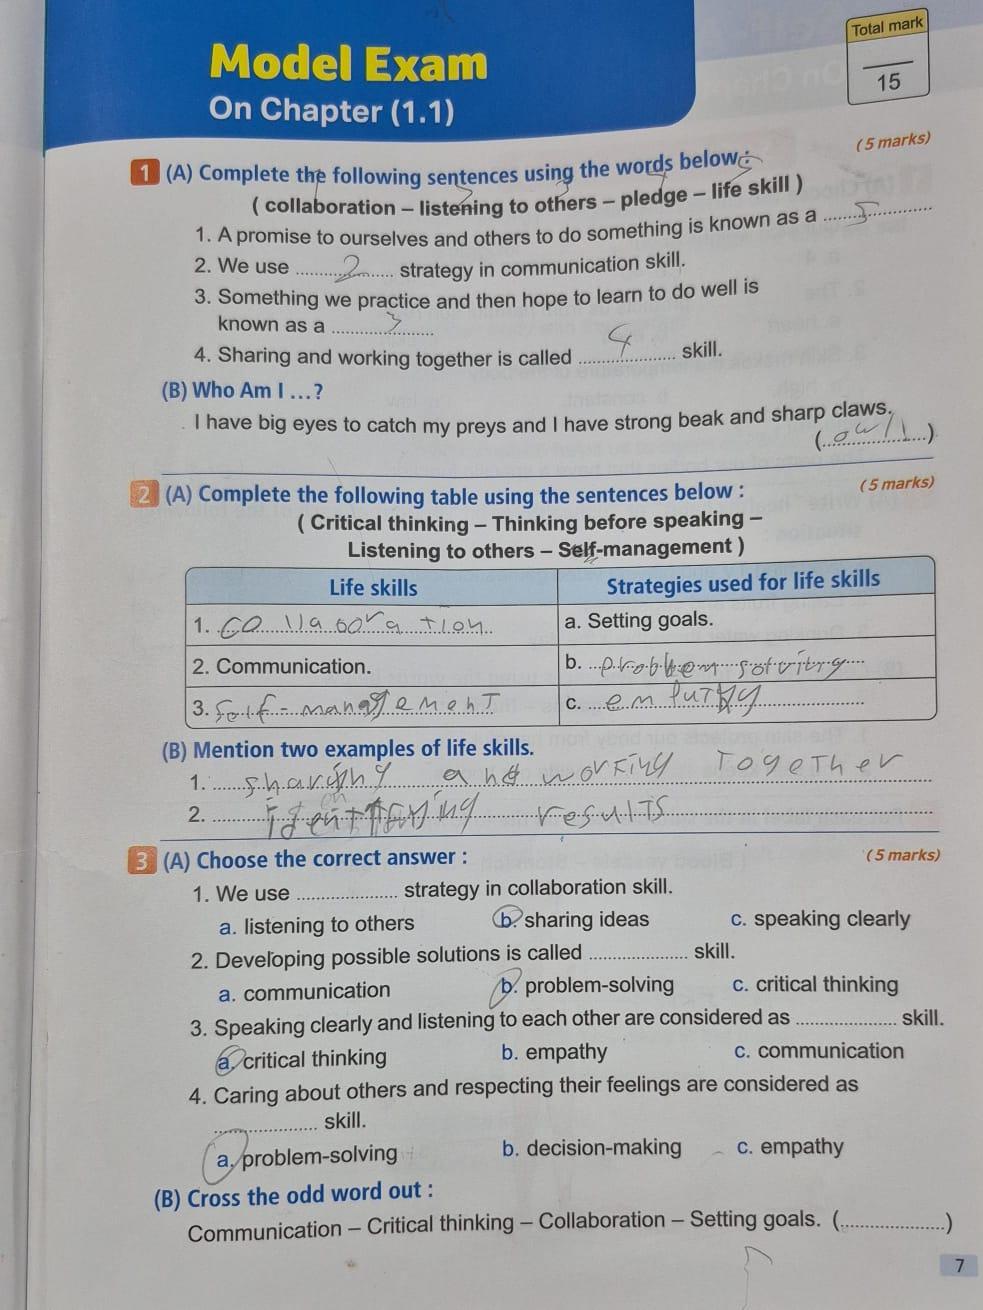 Model Exam
On Chapter (1.1)
Total mark
15
1 (A) Complete the following sentences using the words below : (5 marks)
( collaboration – listening to others – pledge – life skill )
1. A promise to ourselves and others to do something is known as a ..........
2. We use ....2.... strategy in communication skill.
3. Something we practice and then hope to learn to do well is
known as a ....3....
4. Sharing and working together is called ....4.... skill.
(B) Who Am I ...?
I have big eyes to catch my preys and I have strong beak and sharp claws.
(...owl...)
2 (A) Complete the following table using the sentences below : (5 marks)
( Critical thinking – Thinking before speaking –
Listening to others – Self-management )
Life skills Strategies used for life skills
1. collaboration a. Setting goals.
2. Communication. b. problem
3. self-management c.
(B) Mention two examples of life skills.
1. and working together
2. results
3 (A) Choose the correct answer : (5 marks)
1. We use .................... strategy in collaboration skill.
a. listening to others b. sharing ideas c. speaking clearly
2. Developing possible solutions is called .................... skill.
a. communication b. problem-solving c. critical thinking
3. Speaking clearly and listening to each other are considered as .................... skill.
a. critical thinking b. empathy c. communication
4. Caring about others and respecting their feelings are considered as
.................... skill.
a. problem-solving b. decision-making c. empathy
(B) Cross the odd word out :
Communication – Critical thinking – Collaboration – Setting goals. (....................)
7